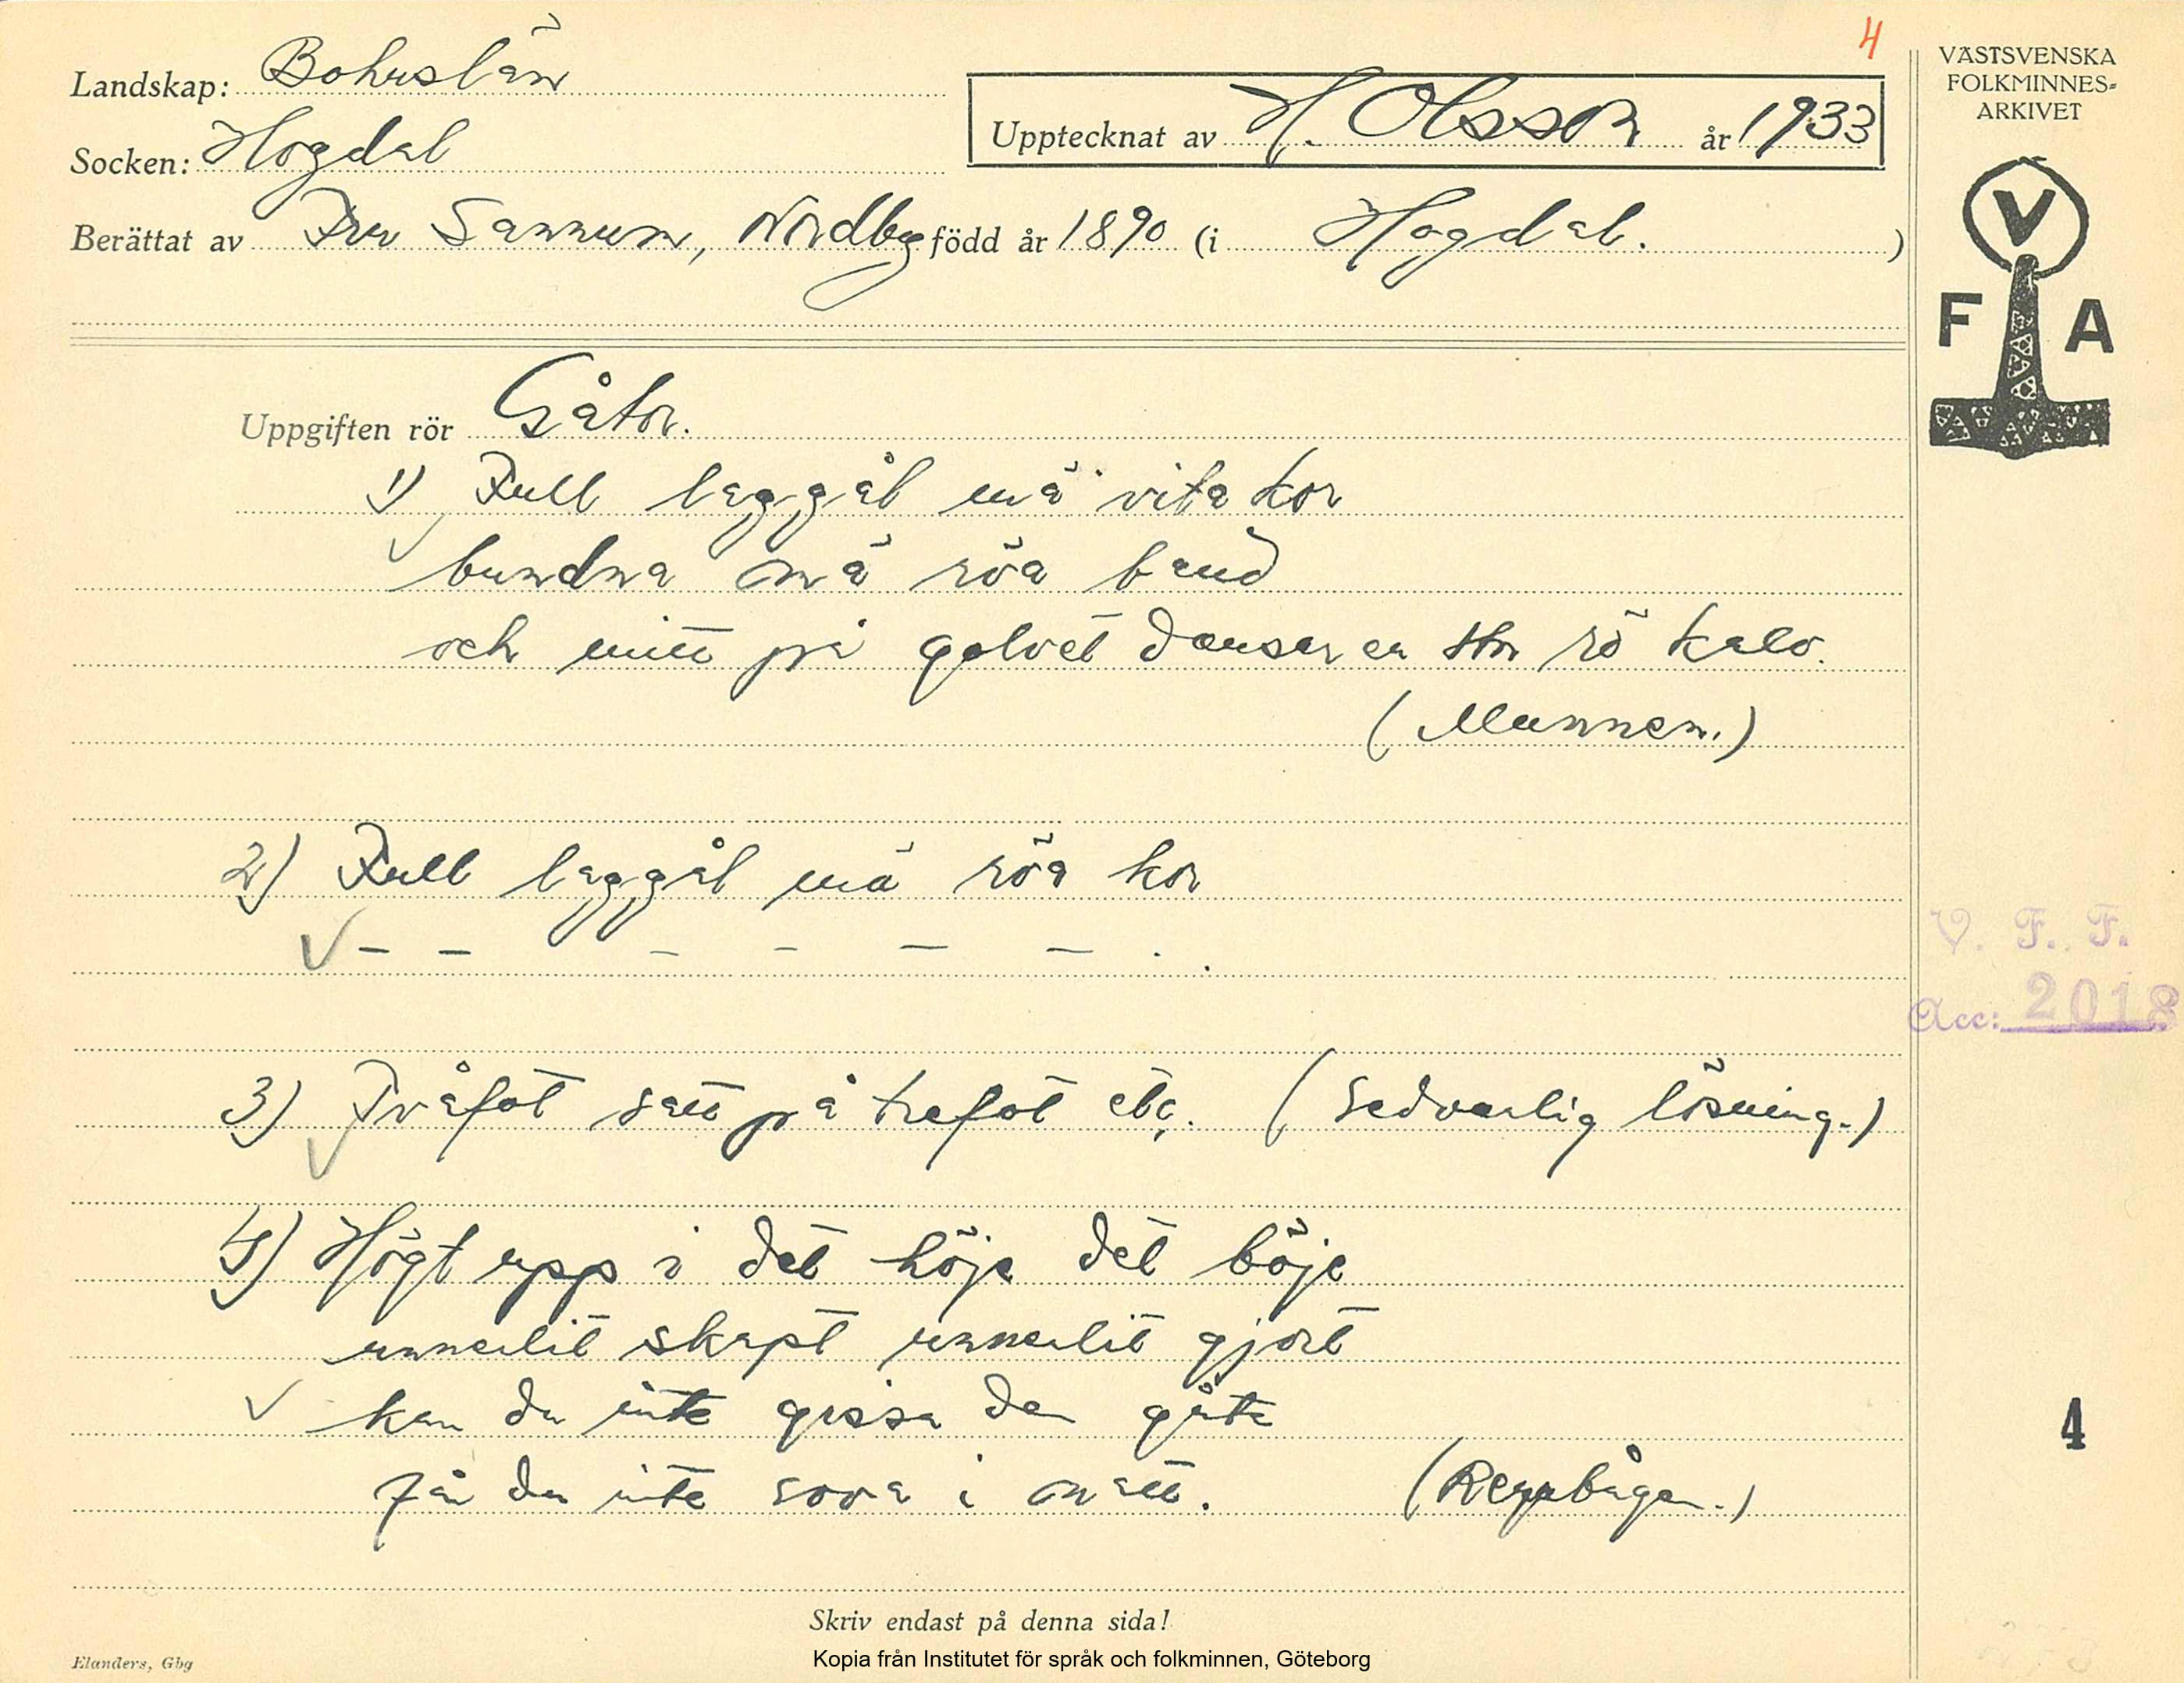 4
Landskap: Bohuslän
Socken: Hogdal
Upptecknat av H. Olsson år 1933
Berättat av Fru Sannum, Nordby född år 1890 (i Hogdal.)
VÄSTSVENSKA
FOLKMINNES-
ARKIVET
V
F A
Uppgiften rör Gåtor.
1) Full laggål mä vita kor
bundna mä röa band
och mitt på golvet dansar en stor rö kalv.
(Munnen.)
2) Full laggål mä röa kor
– – – – – – . .
V. F. F.
Acc: 2018
3) Tvåfot satt på trefot etc. (Sedvanlig lösning.)
4) Högt upp i det höje det böje
unnerlit skapt unnerlit gjort
kan du inte gissa den gåta
får du inte sova i natt. (Regnbågen.)
4
Skriv endast på denna sida!
Elanders, Gbg
Kopia från Institutet för språk och folkminnen, Göteborg